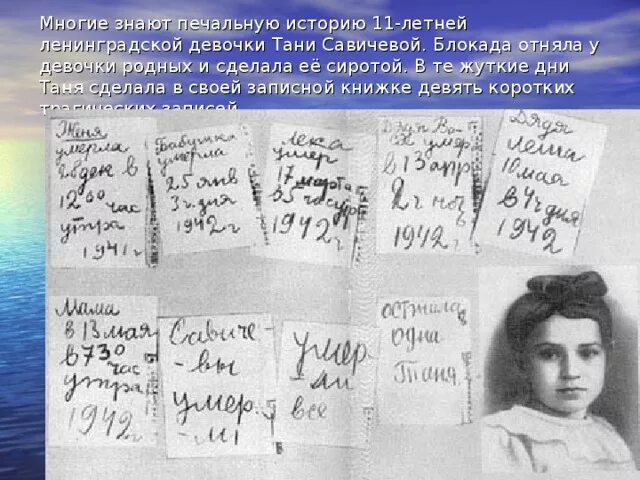 Многие знают печальную историю 11-летней
ленинградской девочки Тани Савичевой. Блокада отняла у
девочки родных и сделала её сиротой. В те жуткие дни
Таня сделала в своей записной книжке девять коротких
трагических записей
Женя
умерла
28 дек в
12 00 час
утра
1941 г
Бабушка
умерла
25 янв
3 ч. дня
1942 г
Лека
умер
17 марта
в 5 час утр
1942 г
Дядя Ва-
ся умер
в 13 апр
2 ч ноч
1942 г
Дядя
Леша
10 мая
в 4 ч дня
1942
Мама
в 13 мая
в 7 30
час
утра
1942 г
Савиче-
-вы
умер.
-ли
умер
-ли
все
осталась
одна
Таня.